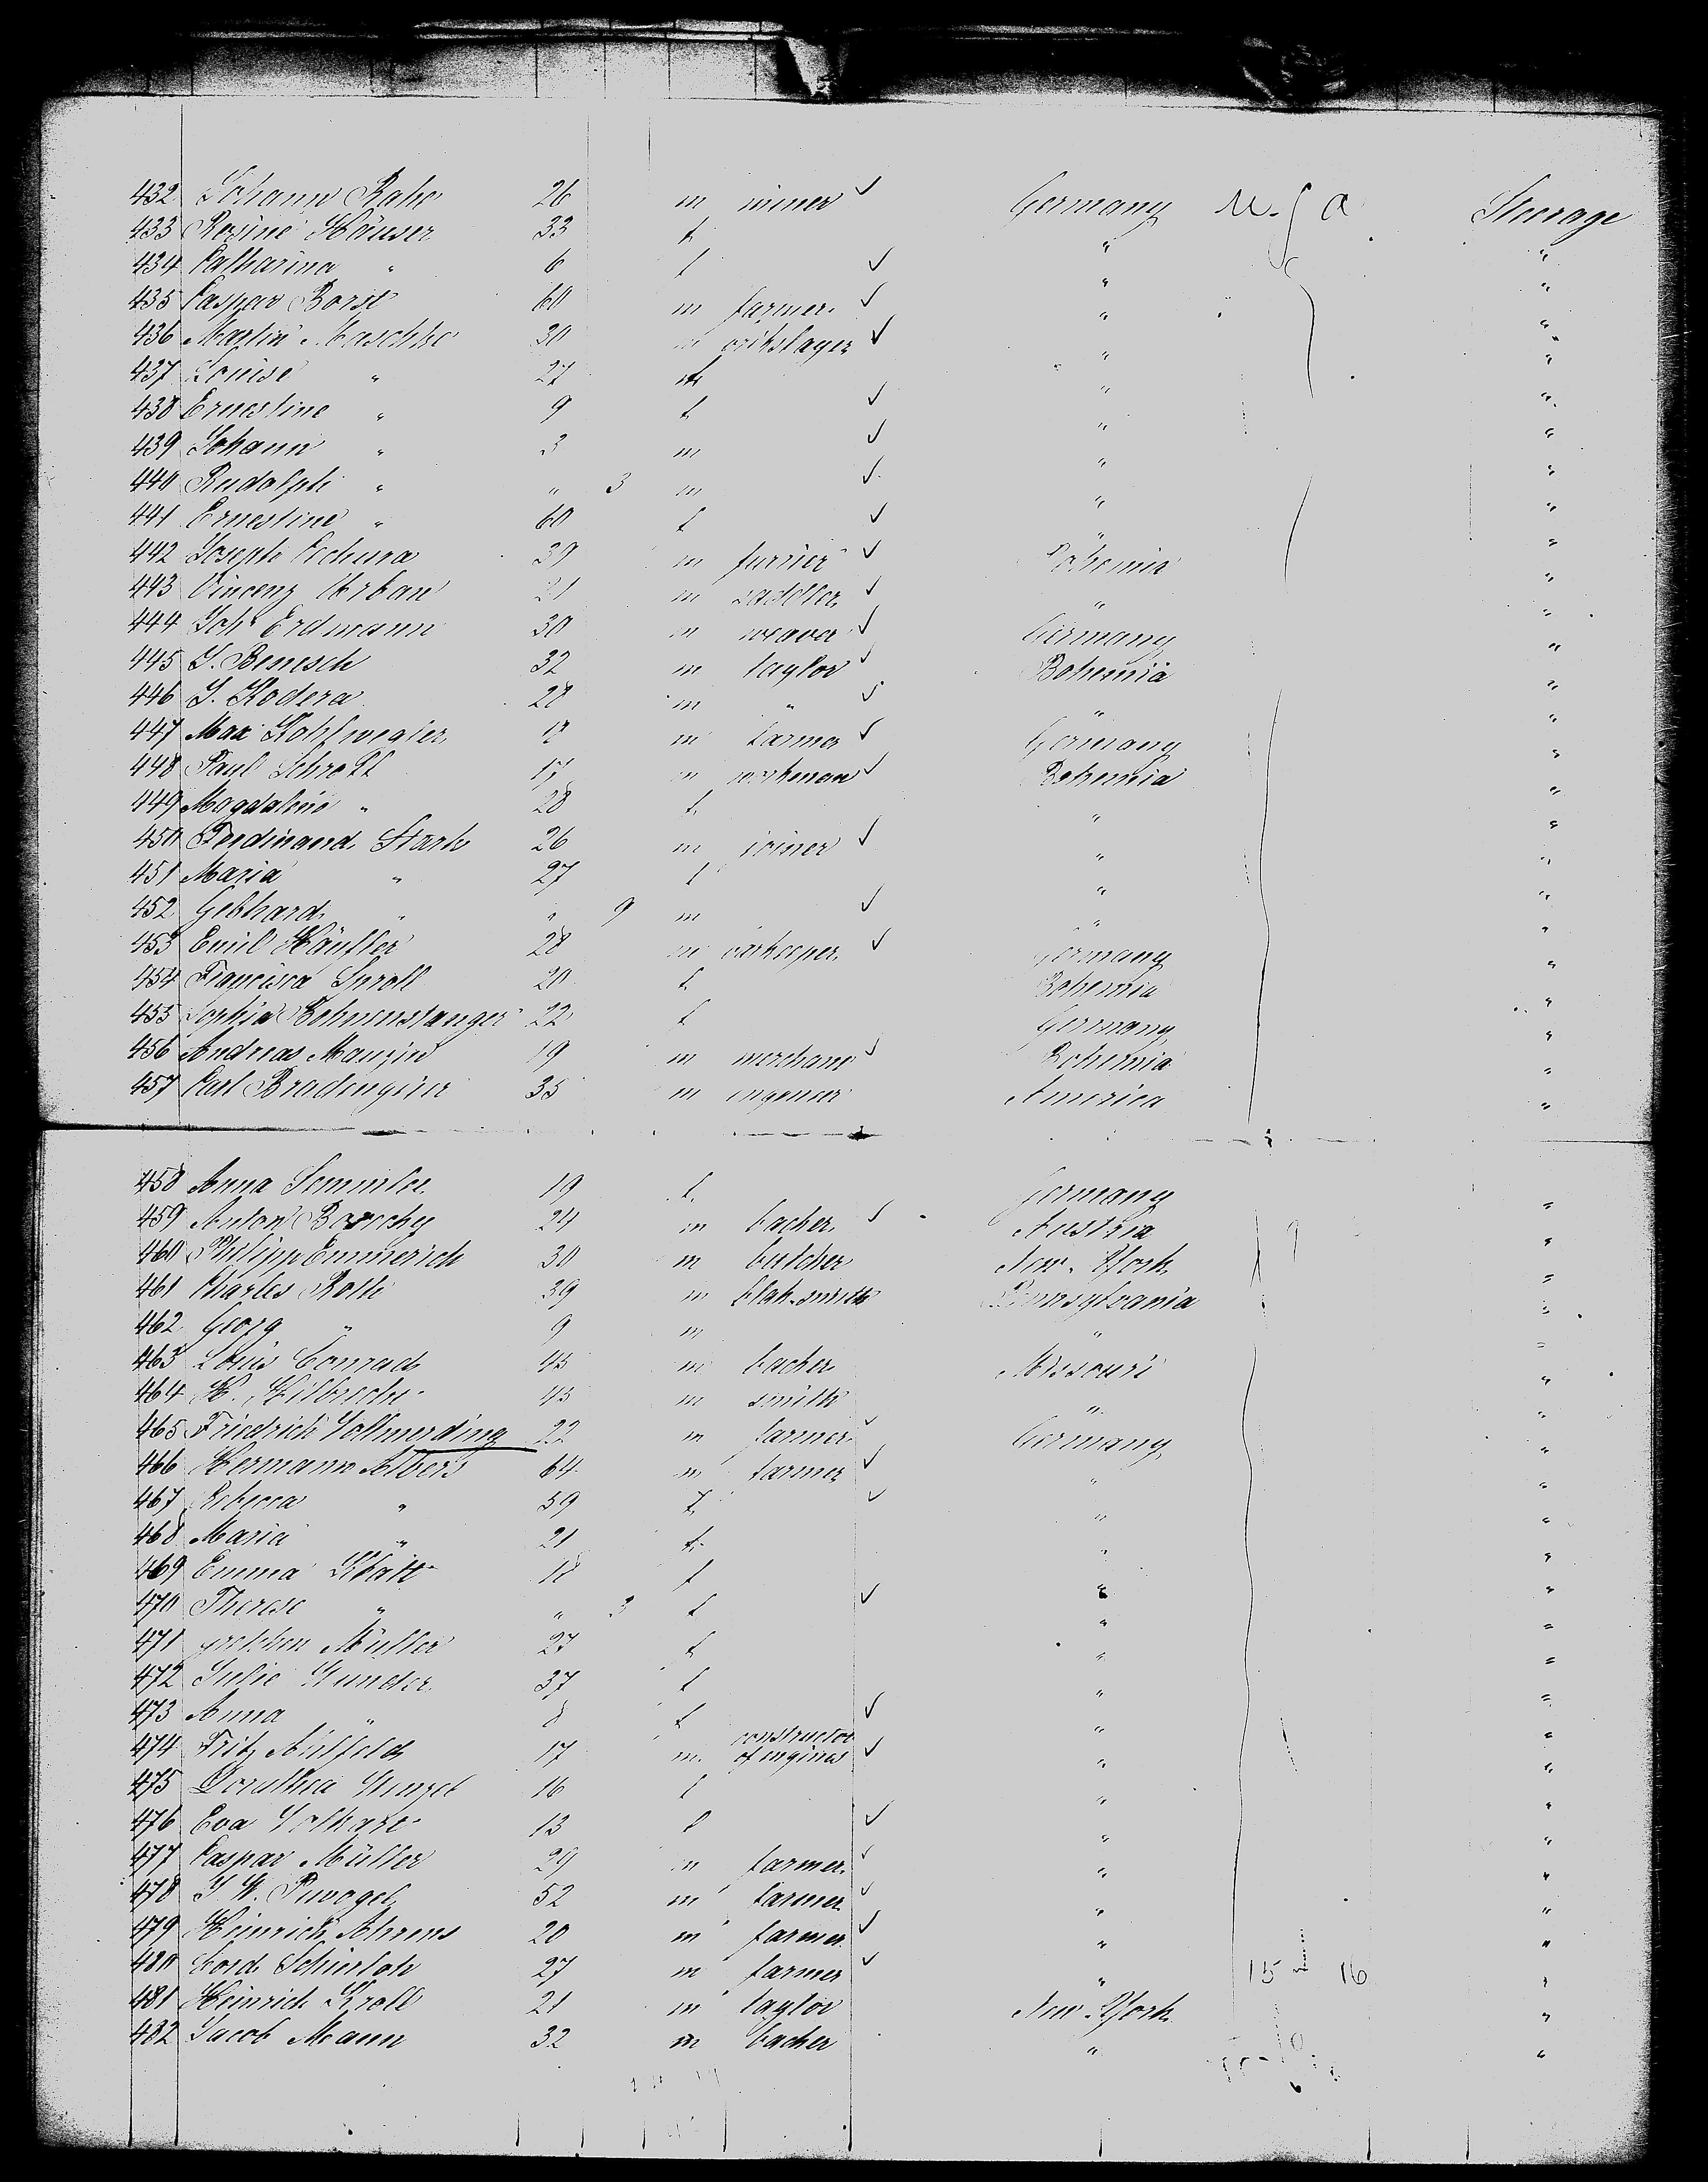 432 Johann Rahe 26 m miner ✓ Germany U. S. A Steerage
433 Rosine Häuser 33 f " "
434 Catharina " 6 f ✓ " "
435 Caspar Borst 60 m farmer ✓ " "
436 Martin Maschke 30 m ✓ " "
437 Louise " 27 f " "
438 Ernestine " 9 f ✓ " "
439 Johann " 3 m ✓ " "
440 Rudolph " " 3 m ✓ " "
441 Ernestine " 60 f ✓ " "
442 Joseph 39 m furrier ✓ Bohemia "
443 Vincenz Urban 21 m sadtler ✓ " "
444 Joh Erdmann 30 m weaver ✓ Germany "
445 J. Benesch 32 m taylor ✓ Bohemia "
446 J. Kodera 28 m " ✓ " "
447 Max 18 m farmer ✓ Germany "
448 Paul Schrett 17 m workman ✓ Bohemia "
449 Magdalene " 28 f " "
450 Ferdinand Stark 26 m joiner ✓ " "
451 Maria " 27 f " "
452 Gebhard " " 9 m ✓ " "
453 Emil Häusler 28 m barkeeper ✓ Germany "
454 Francisca 20 f Bohemia "
455 Sophia 22 f Germany "
456 Andreas 19 m merchant ✓ Bohemia "
457 Carl 35 m engeneer America "
458 Anna 19 f Germany "
459 Anton 24 m backer ✓ Austria "
460 Philipp Emmerich 30 m butcher New-York "
461 Charles Roth 39 m blak-smith Pennsylvania "
462 Georg " 9 m " "
463 Louis Conrad 45 m backer Missouri "
464 H. 45 m smith " "
465 Friedrich Vollmerding 22 m farmer ✓ Germany "
466 Hermann Albers 64 m farmer ✓ " "
467 Rebecca " 59 f ✓ " "
468 Maria " 21 f " "
469 Emma 18 f " "
470 Therese " " 3 f ✓ " "
471 gretchen Müller 27 f " "
472 Julie Gunder 37 f " "
473 Anna " 8 f ✓ " "
474 Fritz 17 m. constructor of engines ✓ " "
475 Dorothea 16 f " "
476 Eva Volkart 13 f ✓ " "
477 Caspar Müller 29 m farmer ✓ " "
478 J. W. Puvogel 52 m farmer ✓ " "
479 Heinrich Ahrens 20 m farmer ✓ " "
480 Cord Schierloh 27 m farmer ✓ " 15 16 "
481 Heinrich Kroll 21 m taylor New-York "
482 Jacob Mann 32 m backer " "